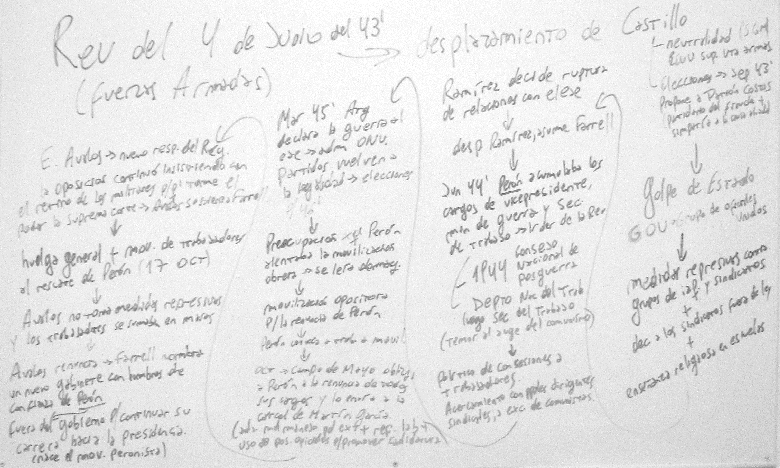 Rev del 4 de Junio del 43' → desplazamiento de Castillo
(Fuerzas Armadas)
neutralidad
EEUU sup. vta armas
Elecciones → sep 43'
Propone a Patrón Costas
partidario del fraude +
simpatía a
↓
golpe de Estado
GOU → Grupo de oficiales
Unidos
↓
medidas represivas contra
grupos de izq y sindicatos
+
dec a los sindicatos fuera de ley
+
enseñanza religiosa en escuelas
Ramírez decide ruptura
de relaciones con el eje
↓
desp Ramírez, asume Farrell
↓
Jun 44' Perón acumulaba los
cargos de vicepresidente,
min de guerra y sec
de trabajo → líder de la Rev
1944 consejo
Nacional de
posguerra
Depto Nac del Trab
luego Sec del Trabajo
(temor al auge del comunismo)
↓
política de concesiones a
trabajadores.
Acercamiento con dirigentes
sindicales, a exc de comunistas.
Mar 45' Arg
declara la guerra al
eje → adm ONU.
Partidos vuelven a
la legalidad → elecciones
Preocupación x el Perón
alentaba la movilización
obrera →
↓
movilización opositora
p/ la renuncia de Perón
↓
Perón
↓
OCT → Campo de Mayo obliga
a Perón a la renuncia de todos
sus cargos y lo envía a la
carcel de Martín García
E. Avalos → nuevo resp. del Rey.
la oposición continuó insistiendo con
el retorno de los militares p/q tome el
poder la suprema corte →
↓
huelga general + mov. de trabajadores
al rescate de Perón (17 OCT)
↓
Avalos no toma medidas represivas
y los trabajadores se suman en masas
↓
Avalos renuncia → Farrell nombra
un nuevo gabinete con hombres de
confianza de Perón
fuera del gobierno p/ continuar su
carrera hacia la presidencia.
(nace el mov. peronista)